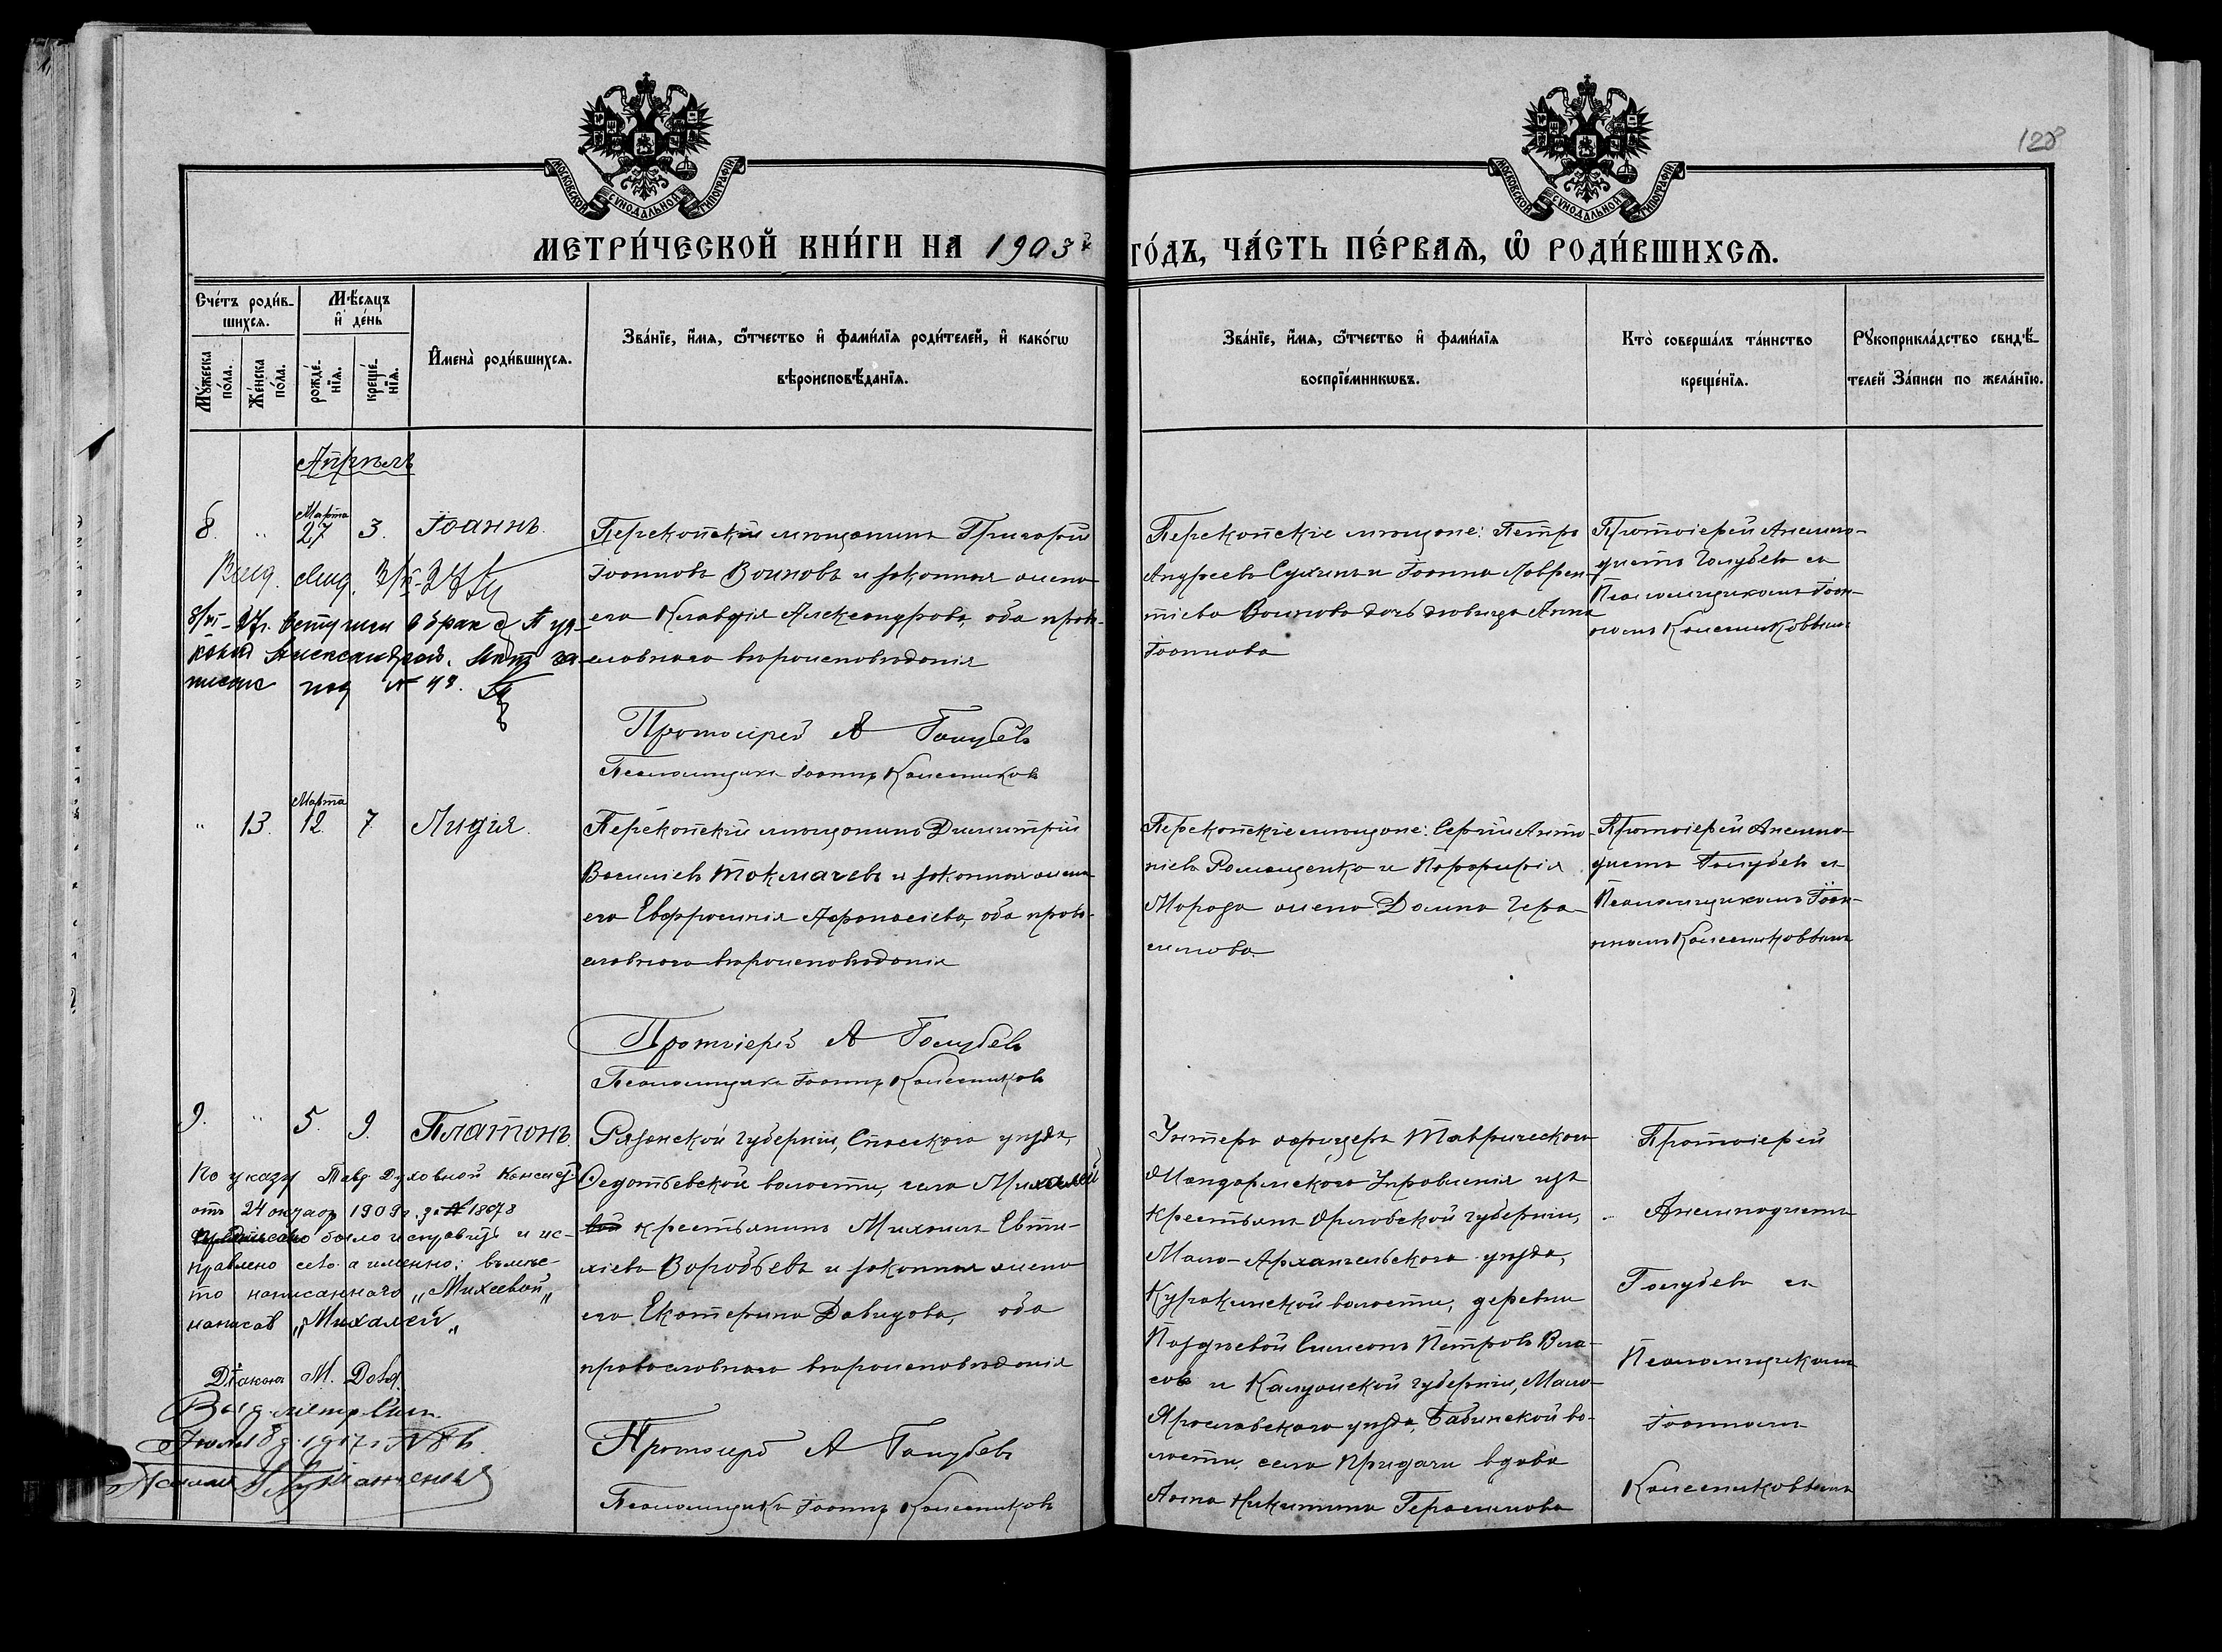 128
МОСКОВСКОЙ СУНОДАЛЬНОЙ ТИПОГРАФІИ
МОСКОВСКОЙ СУНОДАЛЬНОЙ ТИПОГРАФІИ
МЕТРИ́ЧЕСКОЙ КНИ́ГИ НА 1903й
ГО́ДЪ, ЧА́СТЬ ПЕ́РВАѦ, Ѡ РОДИ́ВШИХСѦ.
Сче́тъ роди́в-
шихся.
Мѣ́сяцъ
и де́нь
Му́жеска по́ла.
Же́нска по́ла.
рожде́нїя.
креще́нїя.
Имена̀ роди́вшихся.
Зва́нїе, и́мя, ѻ҆́тчество и фами́лїя роди́телей, и како́гѡ
вѣроисповѣ́данїя.
Зва́нїе, и́мя, ѻ҆́тчество и фами́лїя
воспрїе́мникѡвъ.
Кто̀ соверша́лъ та́инство
креще́нїя.
Рꙋкоприкла́дство свидѣ́-
телей за́писи по жела́нїю.
Апрѣль
8. " Марта 27 3. Іоаннъ.
Перекопскій мѣщанинъ Григорій
Іоанновъ Воиновъ и законная жена
его Клавдія Александрова, оба право-
славнаго вѣроисповѣданія
Протоиерей А Голубевъ
Псаломщикъ Іоаннъ Колесниковъ
Перекопскіе мѣщане: Петръ
Андреевъ Сухинъ и Іоанна Лаврен-
тіева Воинова дочь дѣвица Анна
Іоаннова
Протоіерей Анемпо-
дистъ Голубевъ съ
Псаломщикомъ Іоан-
номъ Колесниковымъ
8/VI-27г. вступил в брак с
Александров. Акт за-
писан под №
" 13. Марта 12. 7 Лидія.
Перекопскій мѣщанинъ Димитрій
Васильевъ Токмачевъ и законная жена
его Евфросинія Афанасіева, оба право-
славнаго вѣроисповѣданія
Протоіерей А Голубевъ
Псаломщикъ Іоаннъ Колесниковъ
Перекопскіе мѣщане: Сергій Анто-
ніевъ Романценко и Порфирія
Мороза жена Домна Гера-
симова.
Протоіерей Анемпо-
дистъ Голубевъ съ
Псаломщикомъ Іоан-
номъ Колесниковымъ
9. " 5. 9. Платонъ.
Рязанской губерніи, Спасскаго уѣзда,
Федотьевской волости, села Михалей
крестьянинъ Михаилъ Евти-
хіевъ Воробьевъ и законная жена
его Екатерина Давидова, оба
православнаго вѣроисповѣданія
Протоиерей А Голубевъ
Псаломщикъ Іоаннъ Колесниковъ
Унтеръ офицеръ Таврическаго
Жандармскаго Управленія изъ
крестьянъ Орловской губерніи,
Мало-Архангельскаго уѣзда,
Куракинской волости, деревни
Позднеевой Симеонъ Петровъ Вла-
совъ и Калужской губерніи, Мало-
Ярославскаго уѣзда, Бабинской во-
лости, села Придачи вдова
Анна Никитина Герасимова
Протоіерей
Анемподистъ
Голубевъ съ
Псаломщикомъ
Іоанномъ
Колесниковымъ
По указу Тавр. Духовной Консист.
отъ 24 января 1909г. за № 18078
предписано было исправить и ис-
правлено сего а именно: вмѣс-
то написаннаго „Михеевой„
написать „Михалей„
Діаконъ М.
Выд. метр. Свид.
Псаломщ.